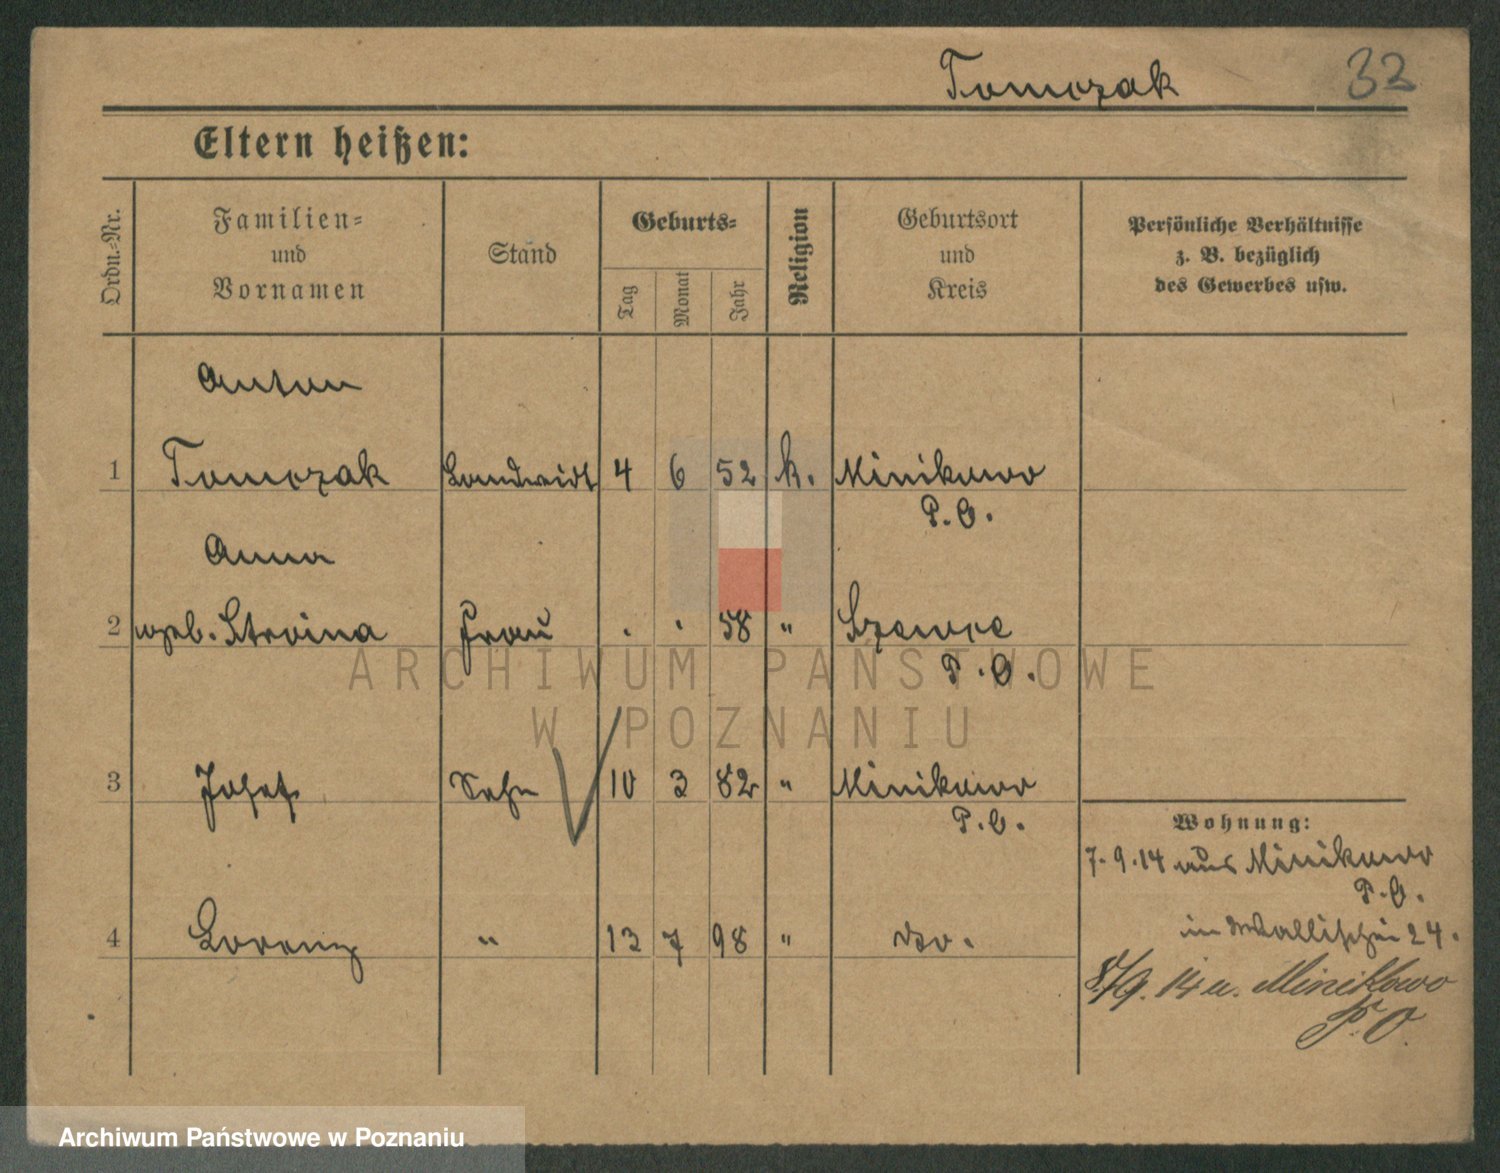 Tomczak 32
Eltern heißen:
Ordn.=Nr.
Familien=
und
Vornamen
Stand
Geburts=
Tag
Monat
Jahr
Religion
Geburtsort
und
Kreis
Persönliche Verhältnisse
z. B. bezüglich
des Gewerbes usw.
Anton
1 Tomczak Landwirt 4 6 52 k. Minikowo
P. O.
Anna
2 geb. Stroina Frau . . 58 " Szewce
P. O.
3 Josef Sohn 10 3 82 " Minikowo
P. O.
Wohnung:
7. 9. 14 aus Minikowo
P. O.
4 Lorenz " 13 7 98 " do.
in Wallischei 24.
8/9. 14 n. Minikowo
P. O.
ARCHIWUM PAŃSTWOWE
W POZNANIU
Archiwum Państwowe w Poznaniu